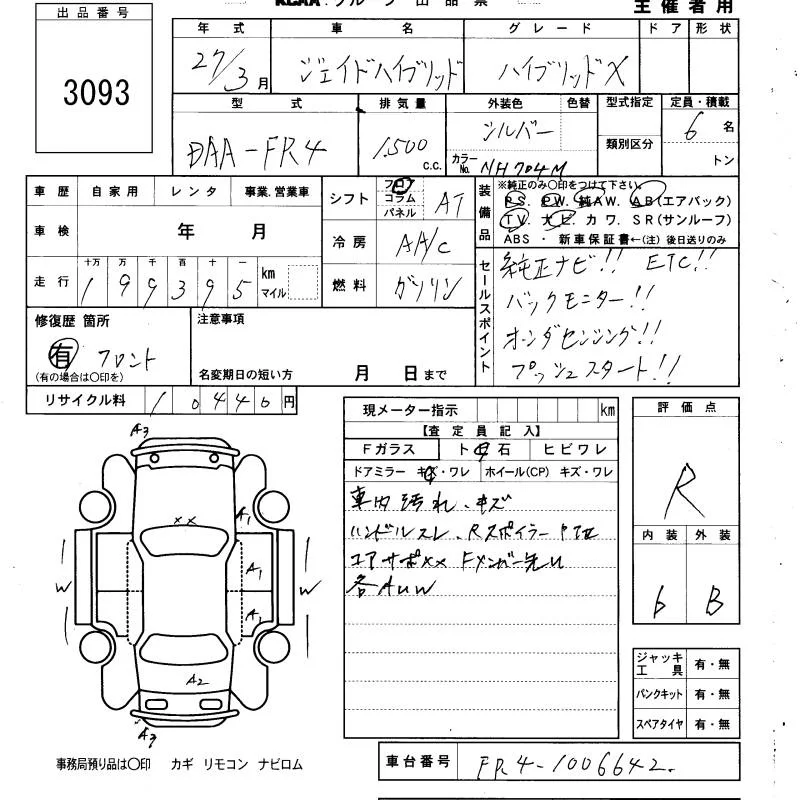 KCAA グループ 出品票 主催者用
出品番号
3093
年式 車名 グレード ドア 形状
27/3月 ジェイドハイブリッド ハイブリッドX
型式 排気量 外装色 色替 型式指定 定員・積載
DAA-FR4 1,500 C.C. シルバー 類別区分 6名
カラーNo. NH704M トン
車歴 自家用 レンタ 事業、営業車
シフト フロ コラム パネル AT
装備品 ※純正のみ〇印をつけて下さい。
PS. PW. 純AW. AB(エアバック)
TV. ナビ カワ. SR(サンルーフ)
ABS ・ 新車保証書←(注) 後日送りのみ
車検 年 月
冷房 AA/C
走行 十万 万 千 百 十 一
199395 km マイル
燃料 ガソリン
セールスポイント
純正ナビ!! ETC!!
バックモニター!!
ホンダセンシング!!
プッシュスタート!!
修復歴 箇所
有 フロント
(有の場合は〇印を)
注意事項
名変期日の短い方 月 日まで
リサイクル料 10440円
現メーター指示 km
【査定員記入】
Fガラス ト石 ヒビワレ
ドアミラー キズ・ワレ ホイール(CP) キズ・ワレ
車内汚れ、キズ
ハンドルスレ、Rスポイラー
エアサポXX
各AUW
評価点
R
内装 外装
6 B
A3
XX
A1
W A1 W
A1
A2
A3
ジャッキ工具 有・無
パンクキット 有・無
スペアタイヤ 有・無
事務局預り品は〇印 カギ リモコン ナビロム
車台番号 FR4-1006642.